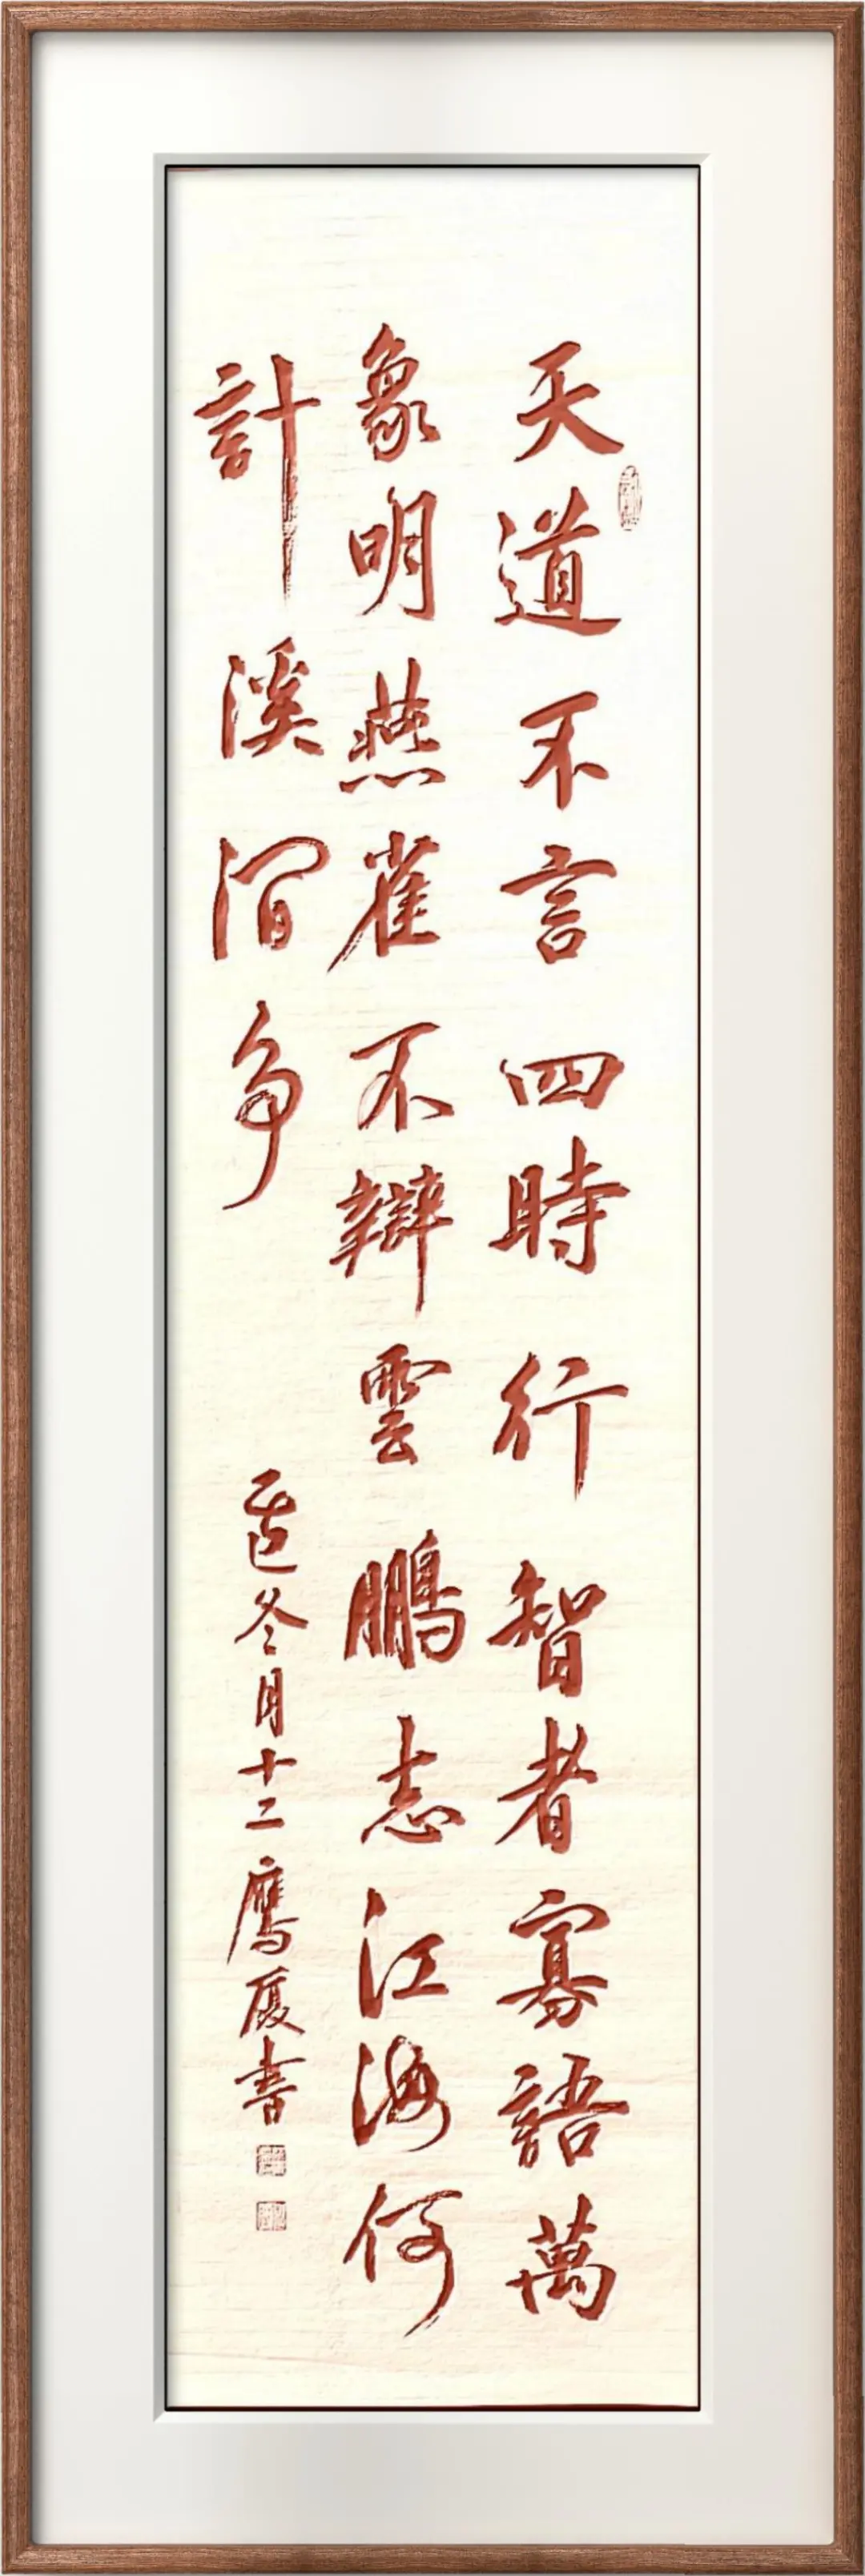 天道不言四時行智者寡語萬
象明燕雀不辯雲鵬志江海何
計溪澗争
乙巳冬月十二鷹厦書